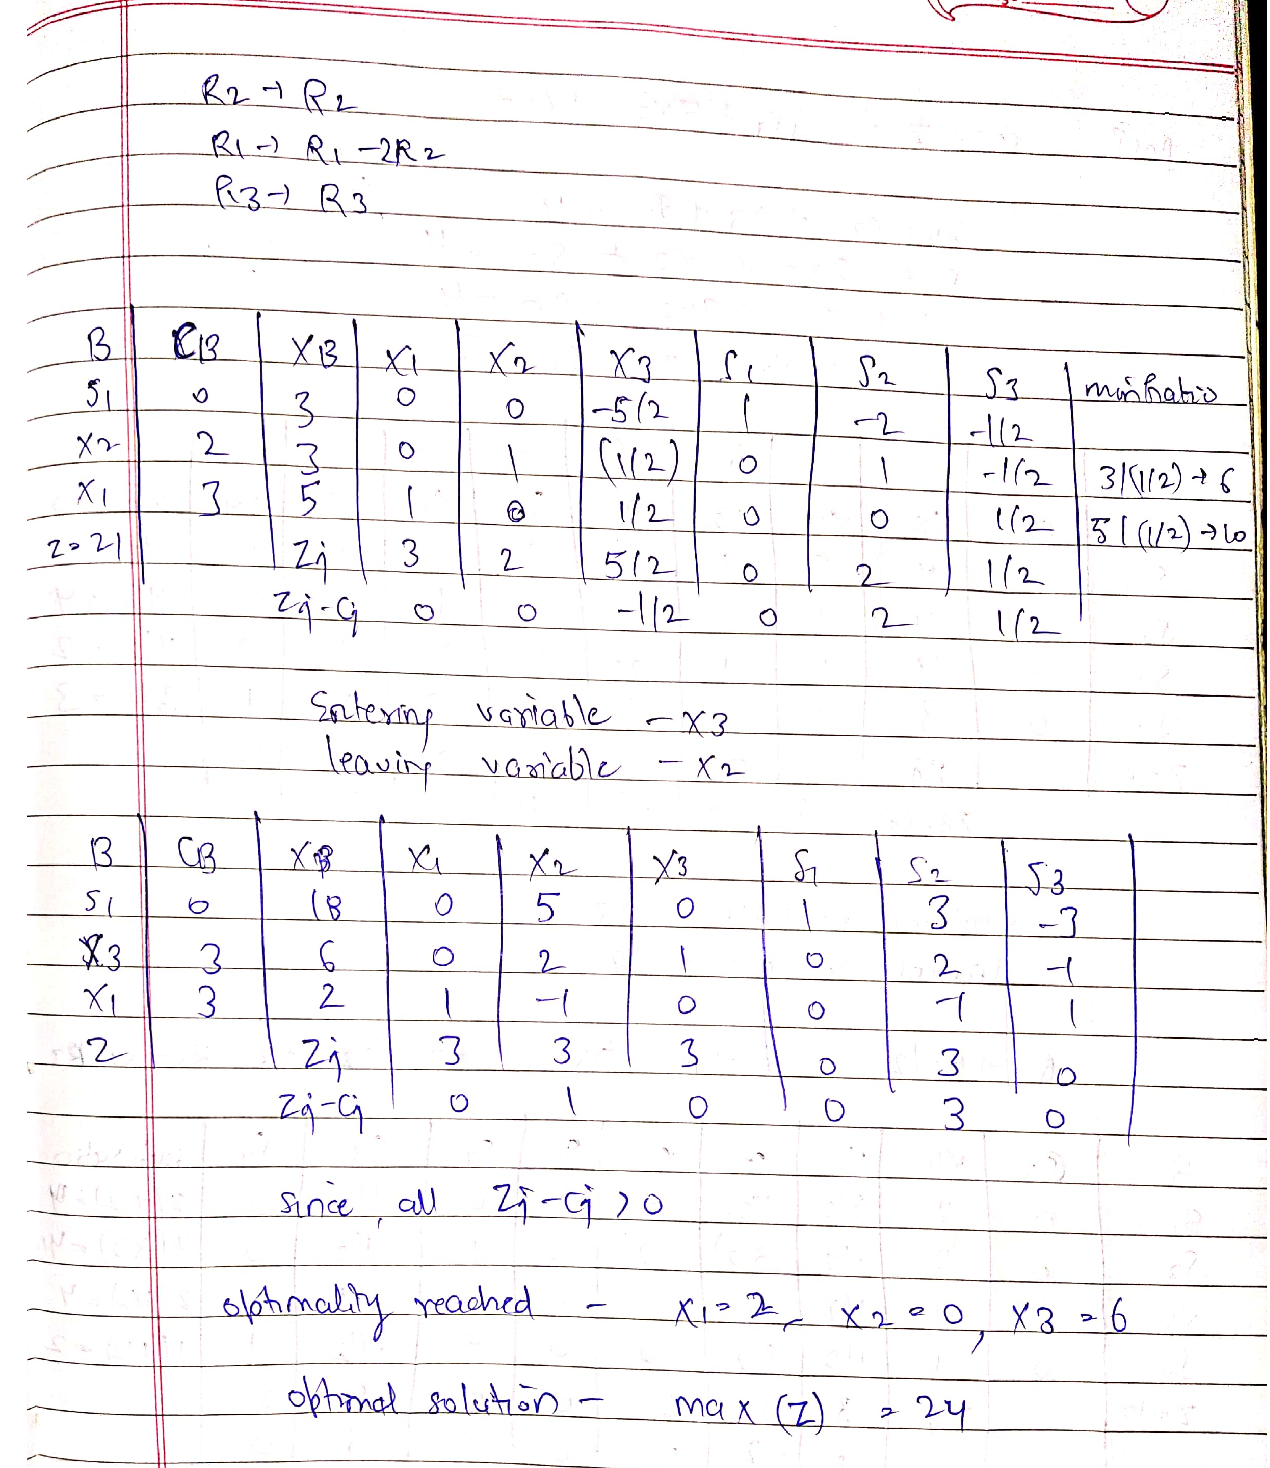 R2 → R2
R1 → R1 - 2R2
R3 → R3
B CB XB X1 X2 X3 S1 S2 S3 minRatio
S1 0 3 0 0 -5/2 1 -2 -1/2
X2 2 3 0 1 (1/2) 0 1 -1/2 3/(1/2) → 6
X1 3 5 1 0 1/2 0 0 1/2 5/(1/2) → 10
Z=21 Zj 3 2 5/2 0 2 1/2
Zj-Cj 0 0 -1/2 0 2 1/2
Entering variable - X3
leaving variable - X2
B CB XB X1 X2 X3 S1 S2 S3
S1 0 18 0 5 0 1 3 -3
X3 3 6 0 2 1 0 2 -1
X1 3 2 1 -1 0 0 -1 1
Z Zj 3 3 3 0 3 0
Zj-Cj 0 1 0 0 3 0
Since, all Zj-Cj > 0
optimality reached - X1 = 2, X2 = 0, X3 = 6
optimal solution - max (Z) = 24